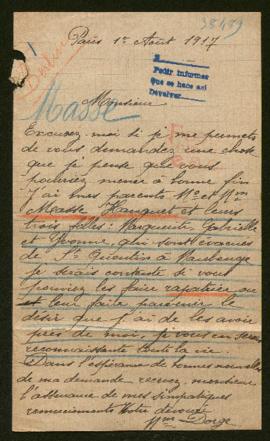 38489
Paris 1er Aout 1917
Pedir informes
que se hace asi
Devolver
Masse
Monsieur
Excusez moi si je me permets
de vous demandez une chose
que je pense que vous
pourriez mener à bonne fin
J'ai mes parents Mr et Mme
Masse et leurs
trois filles: Marguerite, Gabrielle
et Yvonne, qui sont évacués
de St Quentin à Maubeuge
Je serais contente si vous
pouviez les faire rapatrier ou
leur faire parvenir le
désir que j'ai de les avoir
près de moi. je vous en serai
reconnaissante toute la vie.
Dans l'espérance de bonnes nouvelles
de ma demande recevez, monsieur
l'assurance de mes simpatiques
remerciments Votre dévouée
Mme Dorge